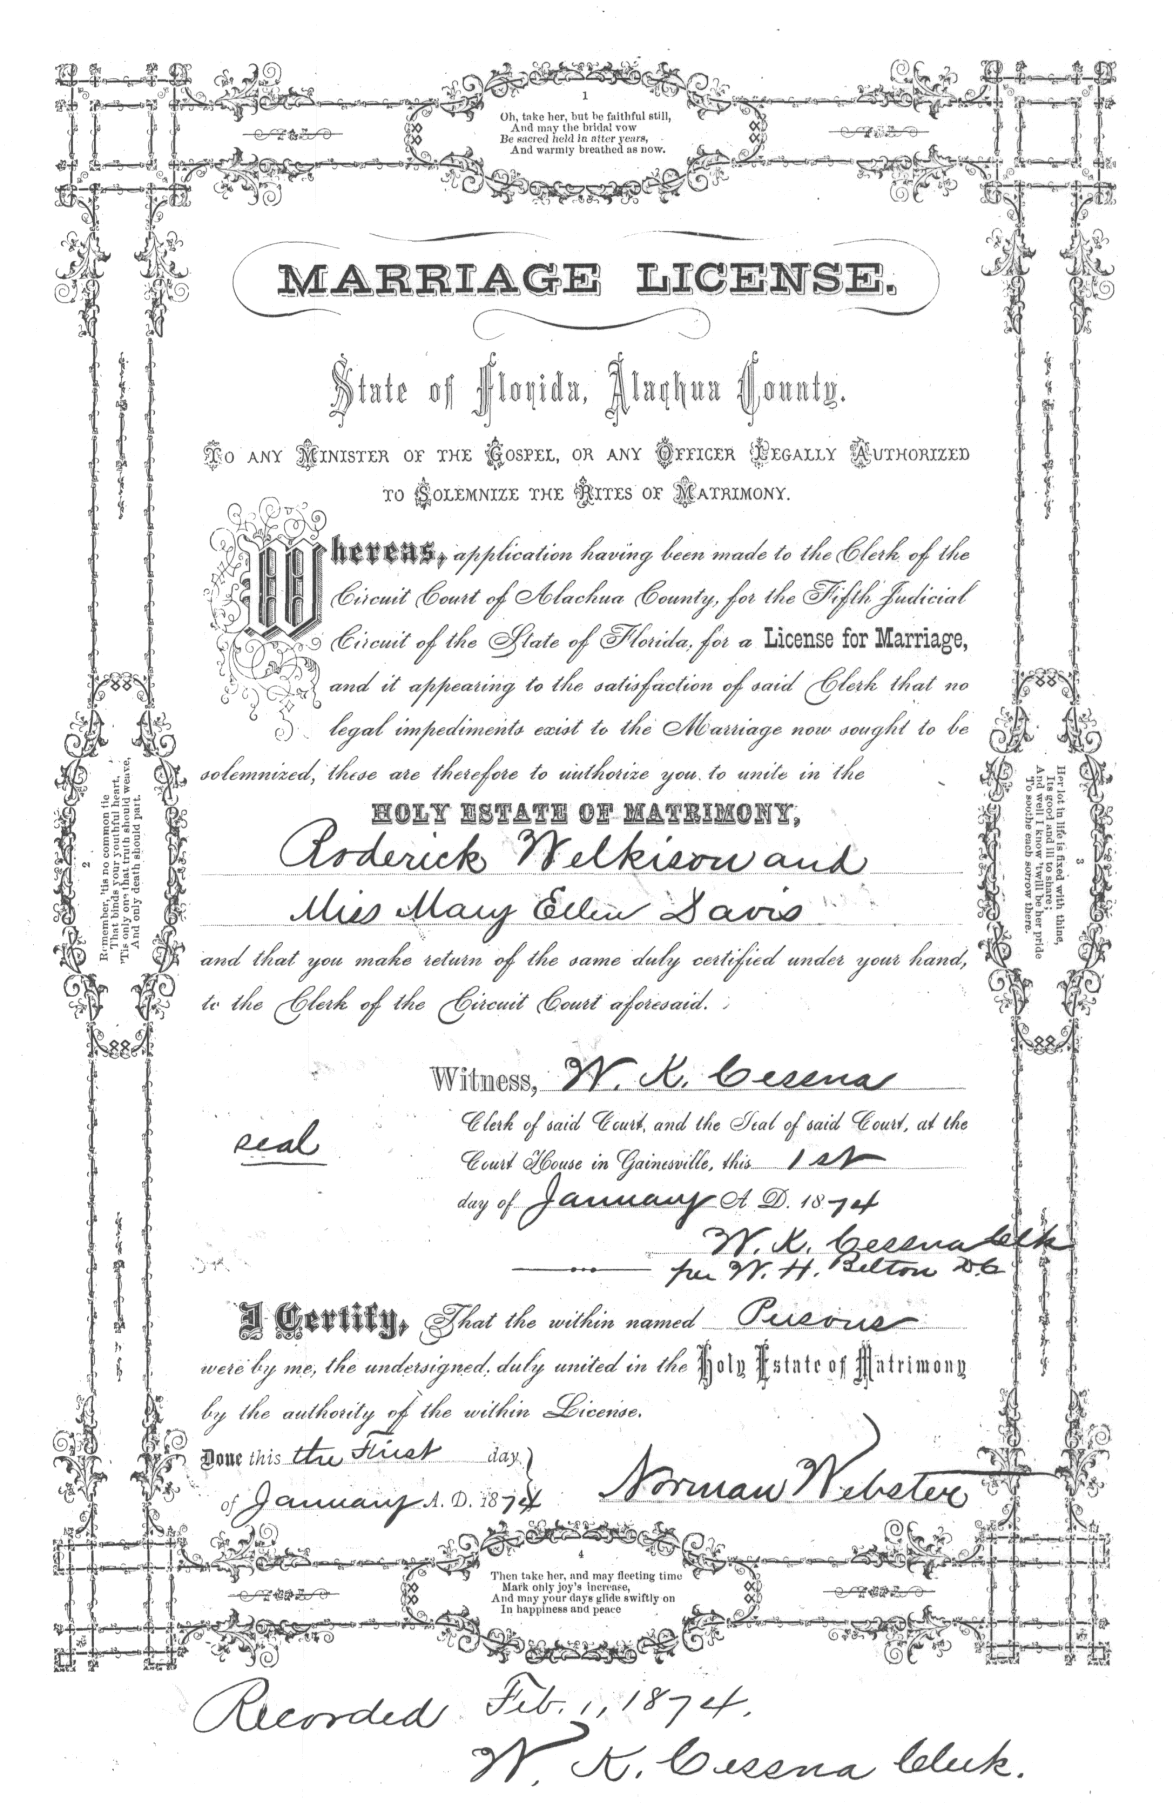 1
Oh, take her, but be faithful still,
And may the bridal vow
Be sacred held in after years,
And warmly breathed as now.
MARRIAGE LICENSE.
State of Florida, Alachua County.
To any Minister of the Gospel, or any Officer Legally Authorized
to Solemnize the Rites of Matrimony.
Whereas, application having been made to the Clerk of the
Circuit Court of Alachua County, for the Fifth Judicial
Circuit of the State of Florida, for a License for Marriage,
and it appearing to the satisfaction of said Clerk that no
legal impediments exist to the Marriage now sought to be
solemnized, these are therefore to authorize you to unite in the
HOLY ESTATE OF MATRIMONY,
Roderick Welkison and
Miss Mary Ellen Davis
and that you make return of the same duly certified under your hand,
to the Clerk of the Circuit Court aforesaid.
2
Remember, 'tis no common tie
That binds your youthful heart,
'Tis only one that truth should weave,
And only death should part.
3
Her lot in life is fixed with thine,
Its good and ill to share;
And well I know 'twill be her pride
To soothe each sorrow there.
Witness, W. K. Cessna
Clerk of said Court, and the Seal of said Court, at the
seal
Court House in Gainesville, this 1st
day of January A. D. 1874
W. K. Cessna Clk
per W. H. Belton D.C
I Certify, That the within named Persons
were by me, the undersigned, duly united in the Holy Estate of Matrimony
by the authority of the within License.
Done this the First day
of January A. D. 1874
Norman Webster
4
Then take her, and may fleeting time
Mark only joy's increase,
And may your days glide swiftly on
In happiness and peace
Recorded Feb. 1, 1874.
W. K. Cessna Clerk.